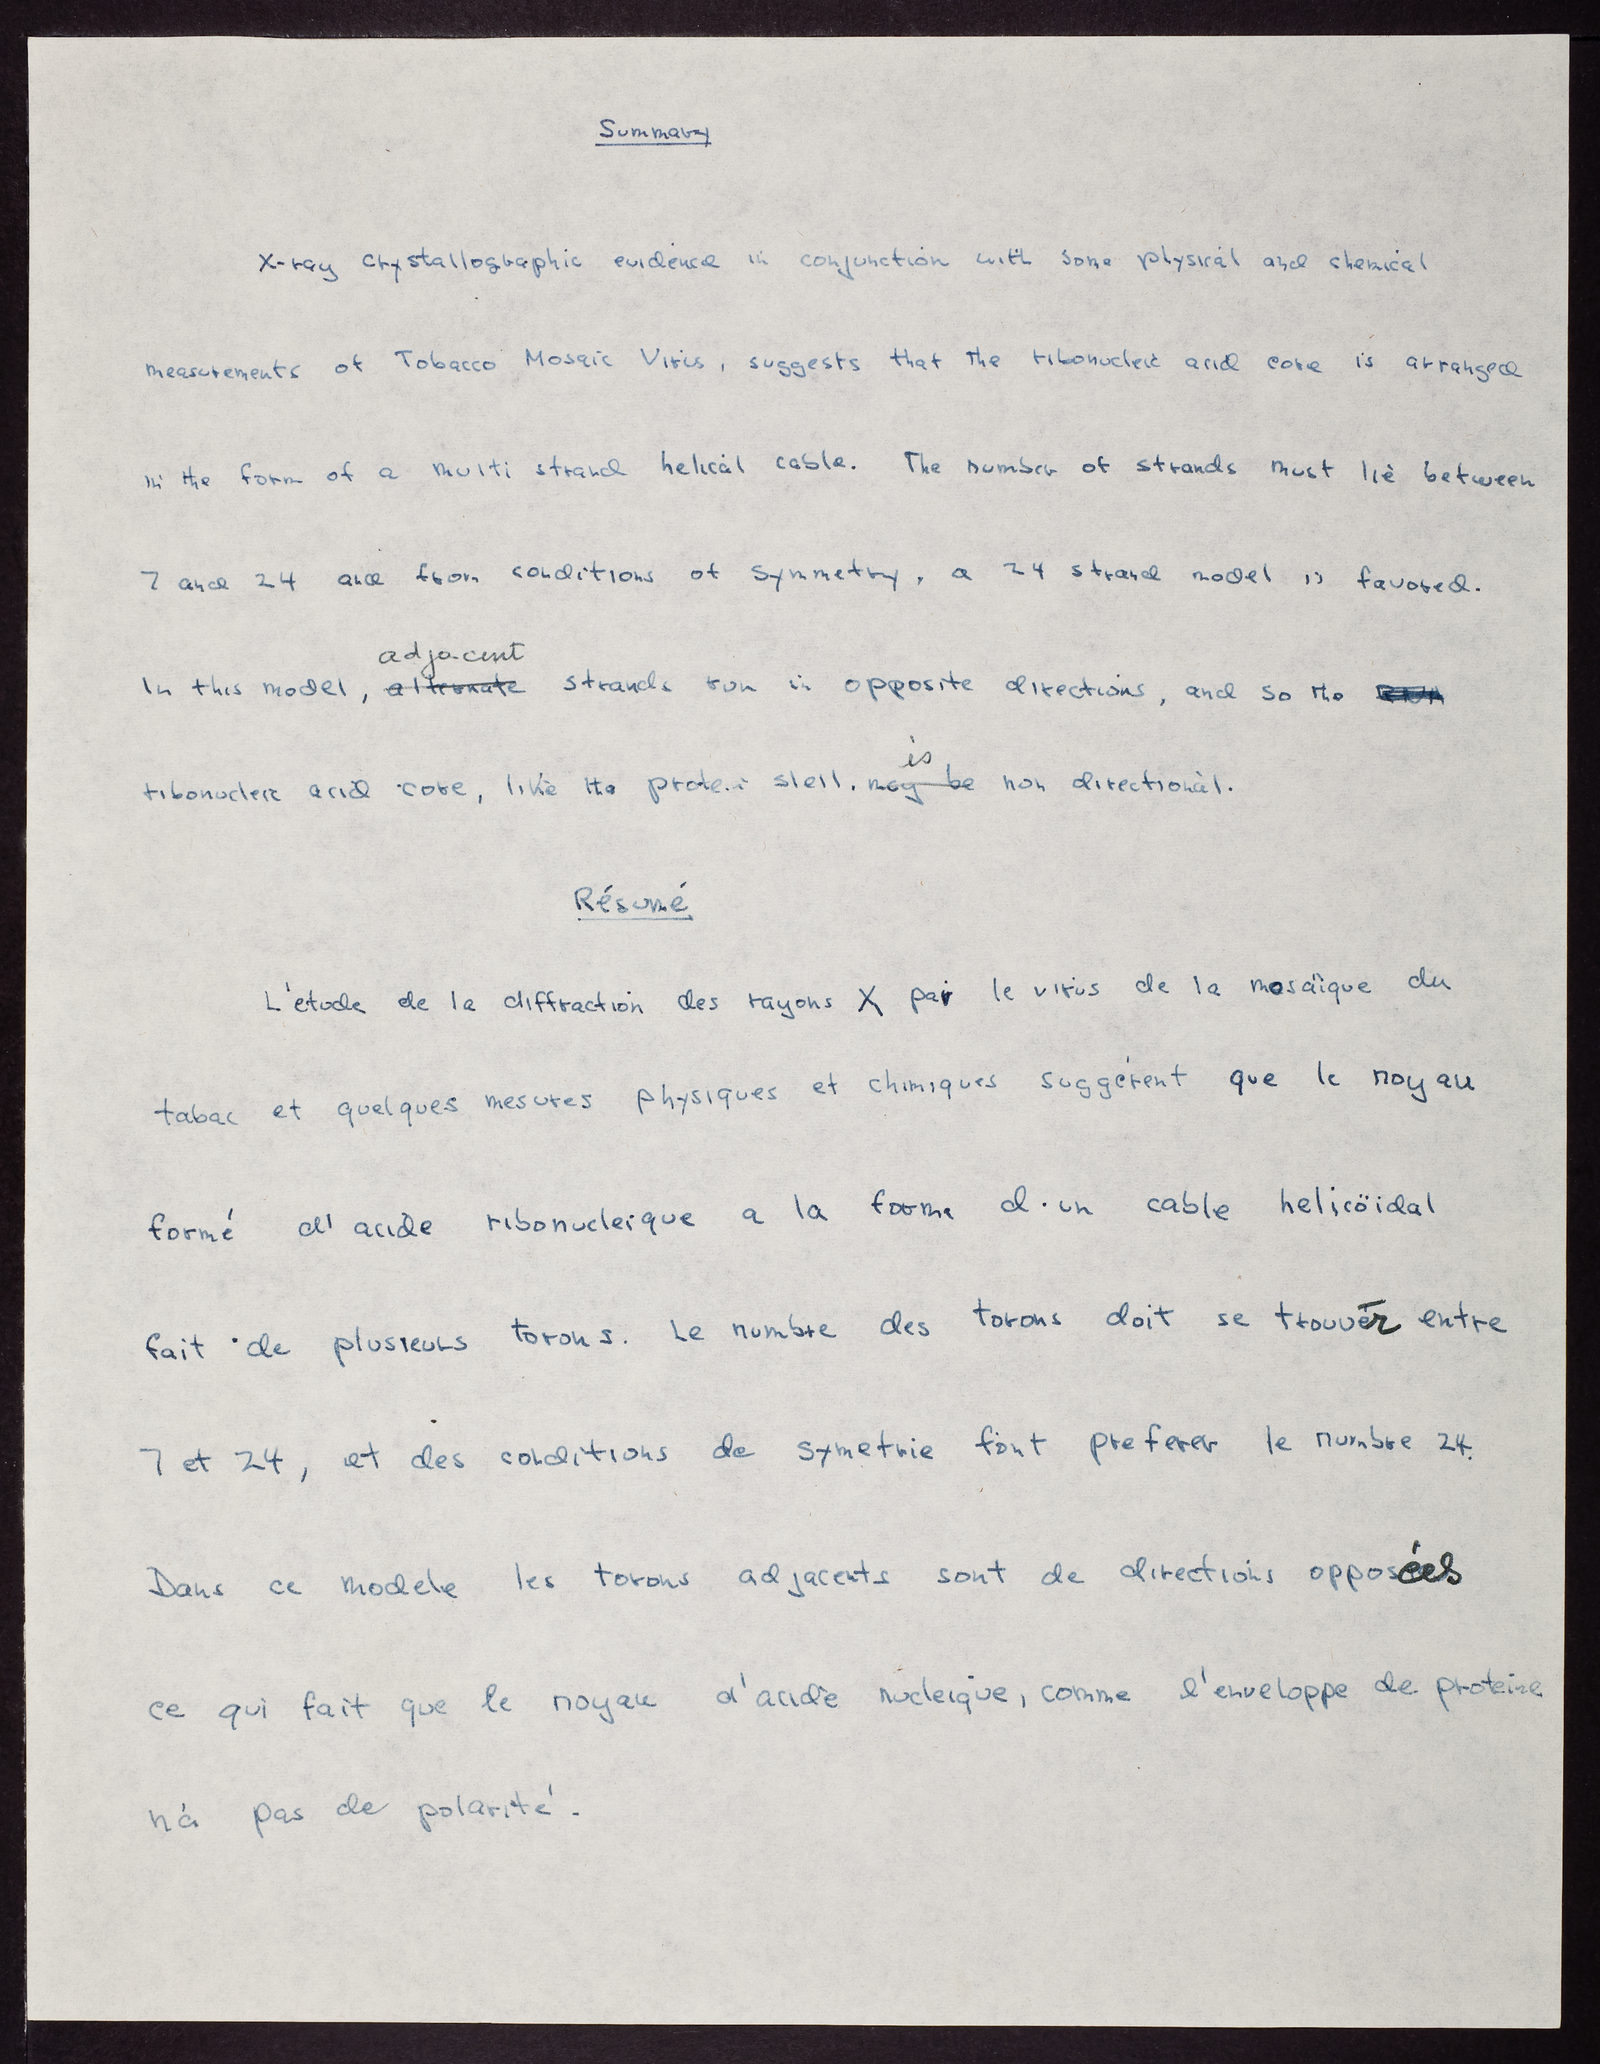 Summary
X-ray crystallographic evidence in conjunction with some physical and chemical
measurements of Tobacco Mosaic Virus, suggests that the ribonucleic acid core is arranged
in the form of a multi strand helical cable. The number of strands must lie between
7 and 24 and from conditions of symmetry, a 24 strand model is favored.
adjacent
In this model, alternate strands run in opposite directions, and so the
is
ribonucleic acid core, like the protein shell, may be non directional.
Résumé
L'étude de la diffraction des rayons X par le virus de la mosaïque du
tabac et quelques mesures physiques et chimiques suggérent que le noyau
formé d'acide ribonucleique a la forme d'un cable helicöidal
fait de plusieurs torons. Le numbre des torons doit se trouver entre
7 et 24, et des conditions de symetrie font preferer le numbre 24.
Dans ce modele les torons adjacents sont de directions opposées
ce qui fait que le noyau d'acide nucleique, comme l'enveloppe de proteine
n'a pas de polarité.